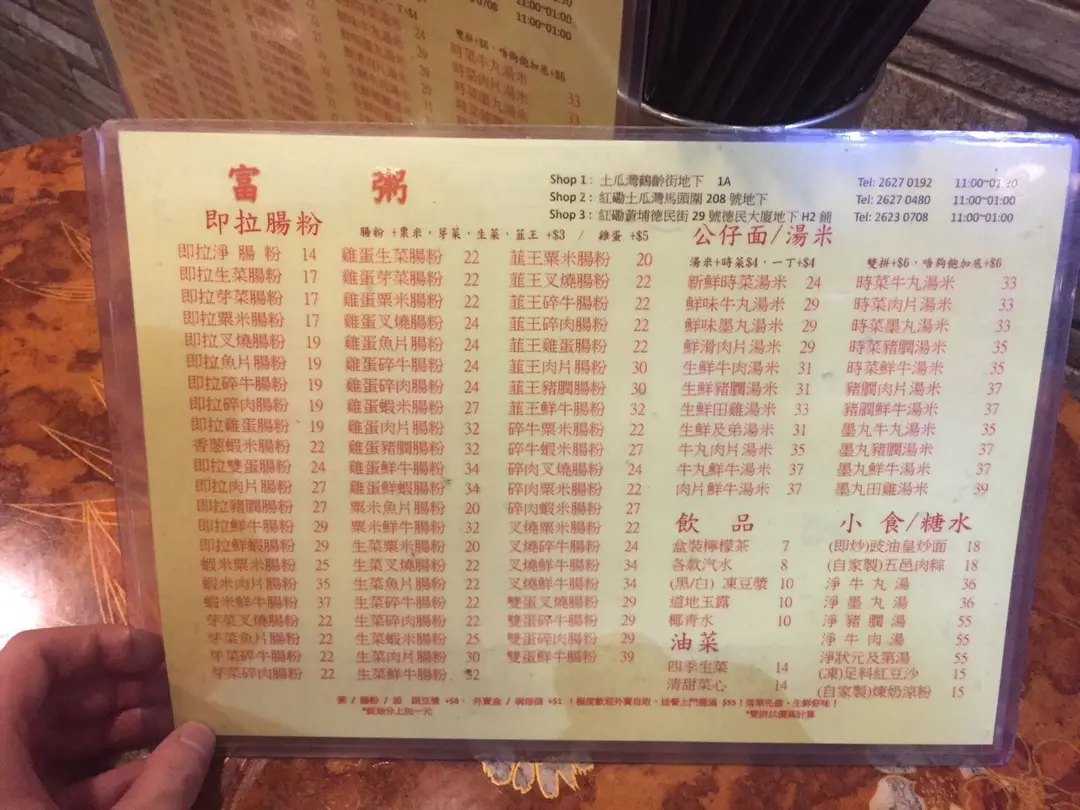 富 粥
Shop 1： 土瓜灣鶴齡街地下 1A Tel: 2627 0192
Shop 2： 紅磡土瓜灣馬頭圍 208 號地下 Tel: 2627 0480 11:00~01:00
Shop 3： 紅磡黃埔德民街 29 號德民大廈地下 H2 鋪 Tel: 2623 0708 11:00~01:00
即拉腸粉
腸粉 +粟米，芽菜，生菜，韮王 +$3 / 雞蛋 +$5
即拉淨 腸 粉 14
即拉生菜腸粉 17
即拉芽菜腸粉 17
即拉粟米腸粉 17
即拉叉燒腸粉 19
即拉魚片腸粉 19
即拉碎牛腸粉 19
即拉碎肉腸粉 19
即拉雞蛋腸粉 19
香蔥蝦米腸粉 22
即拉雙蛋腸粉 24
即拉肉片腸粉 27
即拉豬膶腸粉 27
即拉鮮牛腸粉 29
即拉鮮蝦腸粉 29
蝦米粟米腸粉 25
蝦米肉片腸粉 35
蝦米鮮牛腸粉 37
芽菜叉燒腸粉 22
芽菜魚片腸粉 22
芽菜碎牛腸粉 22
芽菜碎肉腸粉 22
雞蛋生菜腸粉 22
雞蛋芽菜腸粉 22
雞蛋粟米腸粉 22
雞蛋叉燒腸粉 24
雞蛋魚片腸粉 24
雞蛋碎牛腸粉 24
雞蛋碎肉腸粉 24
雞蛋蝦米腸粉 27
雞蛋肉片腸粉 32
雞蛋豬膶腸粉 32
雞蛋鮮牛腸粉 34
雞蛋鮮蝦腸粉 34
粟米魚片腸粉 20
粟米鮮牛腸粉 32
生菜粟米腸粉 20
生菜叉燒腸粉 22
生菜魚片腸粉 22
生菜碎牛腸粉 22
生菜碎肉腸粉 22
生菜蝦米腸粉 25
生菜肉片腸粉 30
生菜鮮牛腸粉 32
韮王粟米腸粉 20
韮王叉燒腸粉 22
韮王碎牛腸粉 22
韮王碎肉腸粉 22
韮王雞蛋腸粉 22
韮王肉片腸粉 30
韮王豬膶腸粉 30
韮王鮮牛腸粉 32
碎牛粟米腸粉 22
碎牛蝦米腸粉 27
碎肉叉燒腸粉 24
碎肉粟米腸粉 22
碎肉蝦米腸粉 27
叉燒粟米腸粉 22
叉燒碎牛腸粉 24
叉燒鮮牛腸粉 34
叉燒鮮牛腸粉 34
雙蛋叉燒腸粉 29
雙蛋碎牛腸粉 29
雙蛋碎肉腸粉 29
雙蛋鮮牛腸粉 39
公仔面/湯米
湯米+時菜$4，一丁+$4 雙拼+$6，唔夠飽加底+$6
新鮮時菜湯米 24
鮮味牛丸湯米 29
鮮味墨丸湯米 29
鮮滑肉片湯米 29
生鮮牛肉湯米 31
生鮮豬膶湯米 31
生鮮田雞湯米 33
生鮮及弟湯米 31
牛丸肉片湯米 35
牛丸鮮牛湯米 37
肉片鮮牛湯米 37
時菜牛丸湯米 33
時菜肉片湯米 33
時菜墨丸湯米 33
時菜豬膶湯米 35
時菜鮮牛湯米 35
豬膶肉片湯米 37
豬膶鮮牛湯米 37
墨丸牛丸湯米 35
墨丸豬膶湯米 37
墨丸鮮牛湯米 37
墨丸田雞湯米 39
飲 品
盒裝檸檬茶 7
各款汽水 8
(黑/白) 凍豆漿 10
道地玉露 10
椰青水 10
油菜
四季生菜 14
清甜菜心 14
小 食/糖水
(即炒)豉油皇炒面 18
(自家製)五邑肉粽 18
淨 牛 丸 湯 36
淨 墨 丸 湯 36
淨 豬 膶 湯 55
淨 牛 肉 湯 55
淨狀元及第湯 55
(凍)足料紅豆沙 15
(自家製)煉奶涼粉 15